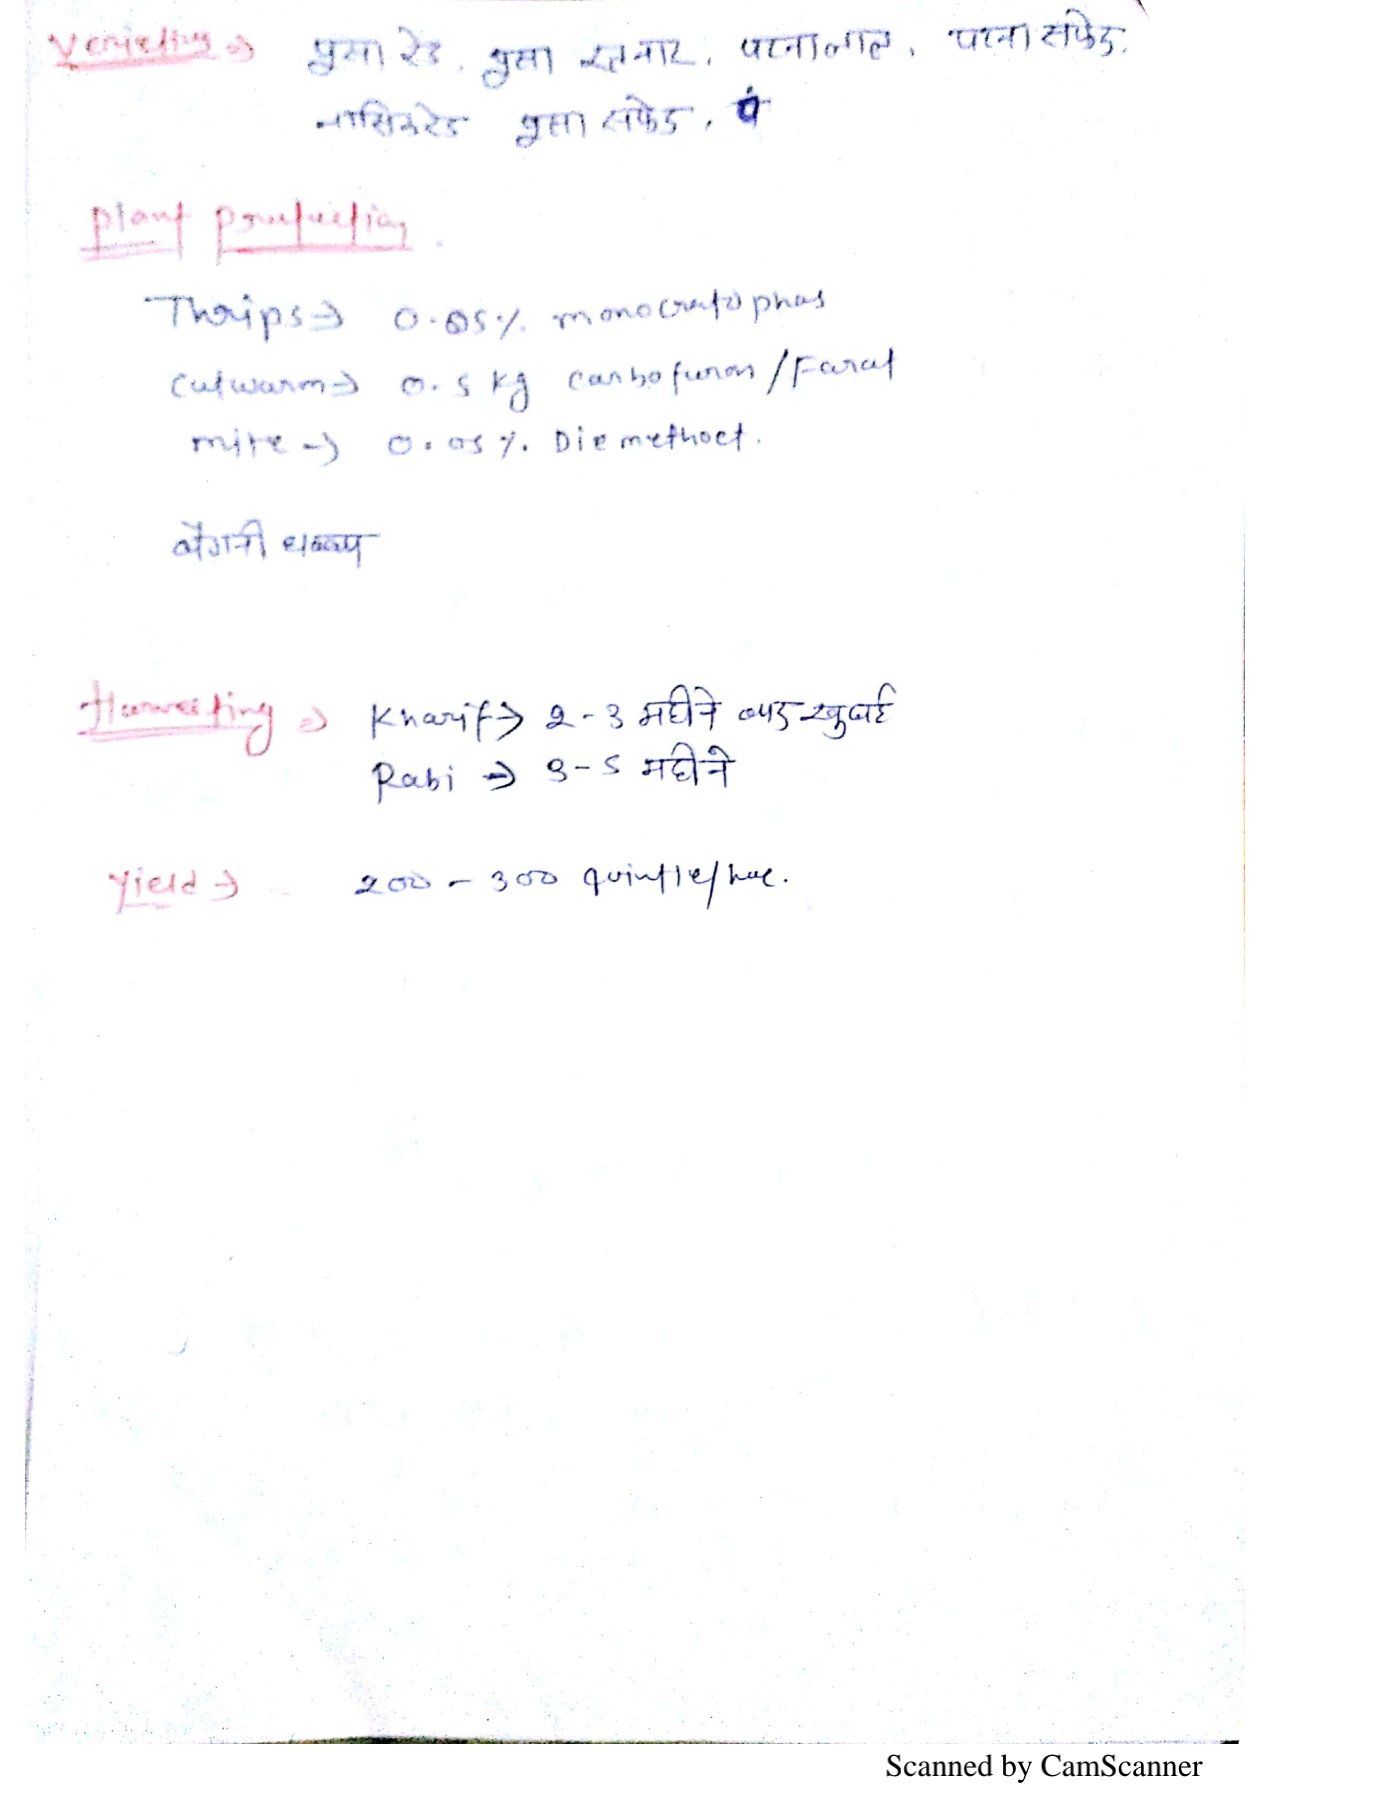 Verieting → पुसा रेड, पुसा रतनार, पटनालाल, पटना सफेद.
नासिकरेड पुसा सफेद, पं
plant protection
Thrips → 0.05% monocrotophas
Cutwarm → 0.5 kg carbofuron/Farat
mite → 0.05% Diemethoet.
बैगनी धब्बा
Harvesting → Kharif → 2-3 महीने बाद खुदाई
Rabi → 3-5 महीने
Yield → 200 - 300 quintle/hac.
Scanned by CamScanner